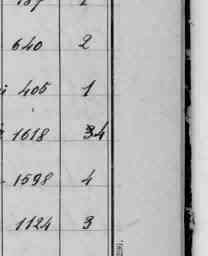 640 2
405 1
1618 34
1598 4
1124 3